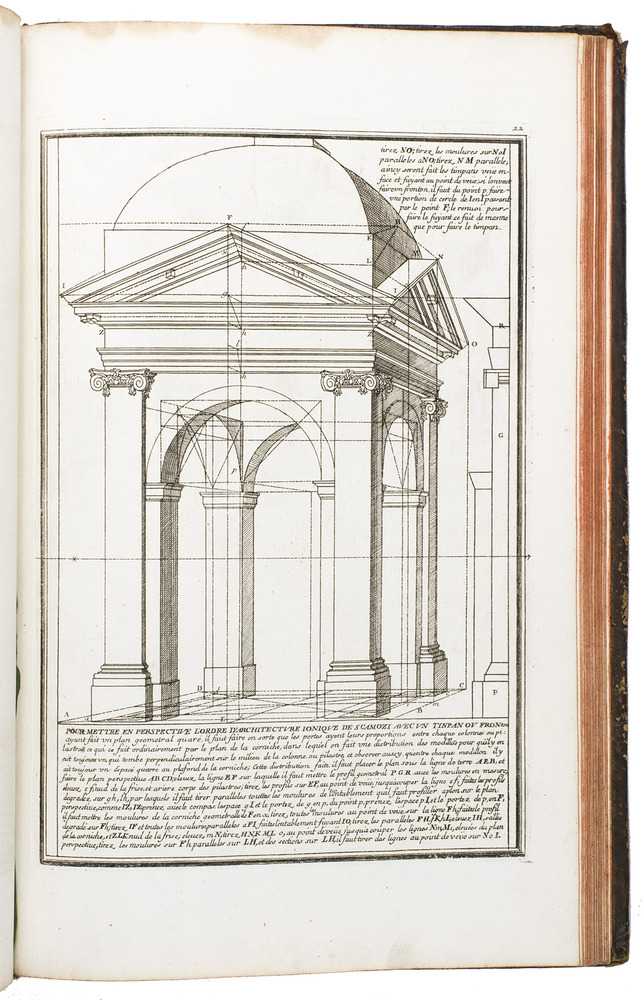 22
tirez NO; tirez les moulures sur No I
paralleles a NO; tirez N M parallele,
aincy seront fait les timpans veue en-
face et fuyant au point de veue, si lon veut
faire vn fronton, il faut du point p. faire
vne portion de cercle de I en I passant
par le point F, le renuoi pour
faire le fuyant ce fait de mesme
que pour faire le timpan.
F
H
K
L
N
I
I
h
g
Z
h
h
O
R
G
P
p
A
D
E
B
m
C
POUR METTRE EN PERSPECTIVE LORDRE D'ARCHITECTVRE IONIQVE DE SCAMOZI AVEC VN TINPAN OV FRONton
ayant fait vn plan geometral quaré, il faut faire en sorte que les portes ayent leurs proportions entre chaque colonne ou pi:
lastre, et ce qui ce fait ordinairement par le plan de la corniche, dans lequel on fait vne distribution des modillons pour quil y en
ait toujours vn, qui tombe perpendiculairement sur le milieu de la colonne ou pilastre, et observer aussy, quentre chaque modillon il y
ait toujour vn espace quarre au plafond de la corniche; Cette distribution faite, il faut placer le plan sous la ligne de terre AEB, et
faire le plan perspectiue ABCD; eleuez la ligne EF sur laquelle il faut mettre le profil geometral PGR auec les moulures en mesure,
eleuez e f nud de la frise, et ariere corps des pilastres; tirez les profils sur EF, au point de veue jusqua couper la ligne e f, faites le profil
degradez, sur gh, ih, par lesquels il faut tirer paralleles touttes les moulures de lentablement quil faut profiller aplon sur le plan
perspectiue, comme IZ, IZ; prenez auec le compas lespace g I. et le portez de g en p, du point p, prenez lespace p I, et le portez de p, en F,
il faut mettre les moulures de la corniche geometralle F en
degradé sur Fh; tirez IF et touttes les moulures paralleles a FI, faites lentablement fuyant IO; tirez les paralleles FH
de la corniche, et ZLK nud de la frise; eleuez m N, tirez HNKML o, au point de veue jusqua couper les lignes Nm Mi, eleuéz du plan
perspectiue, tirez les moulures sur Fh paralleles sur LH, et des sections sur LH, il faut tirer des lignes au point de veue sur No I.